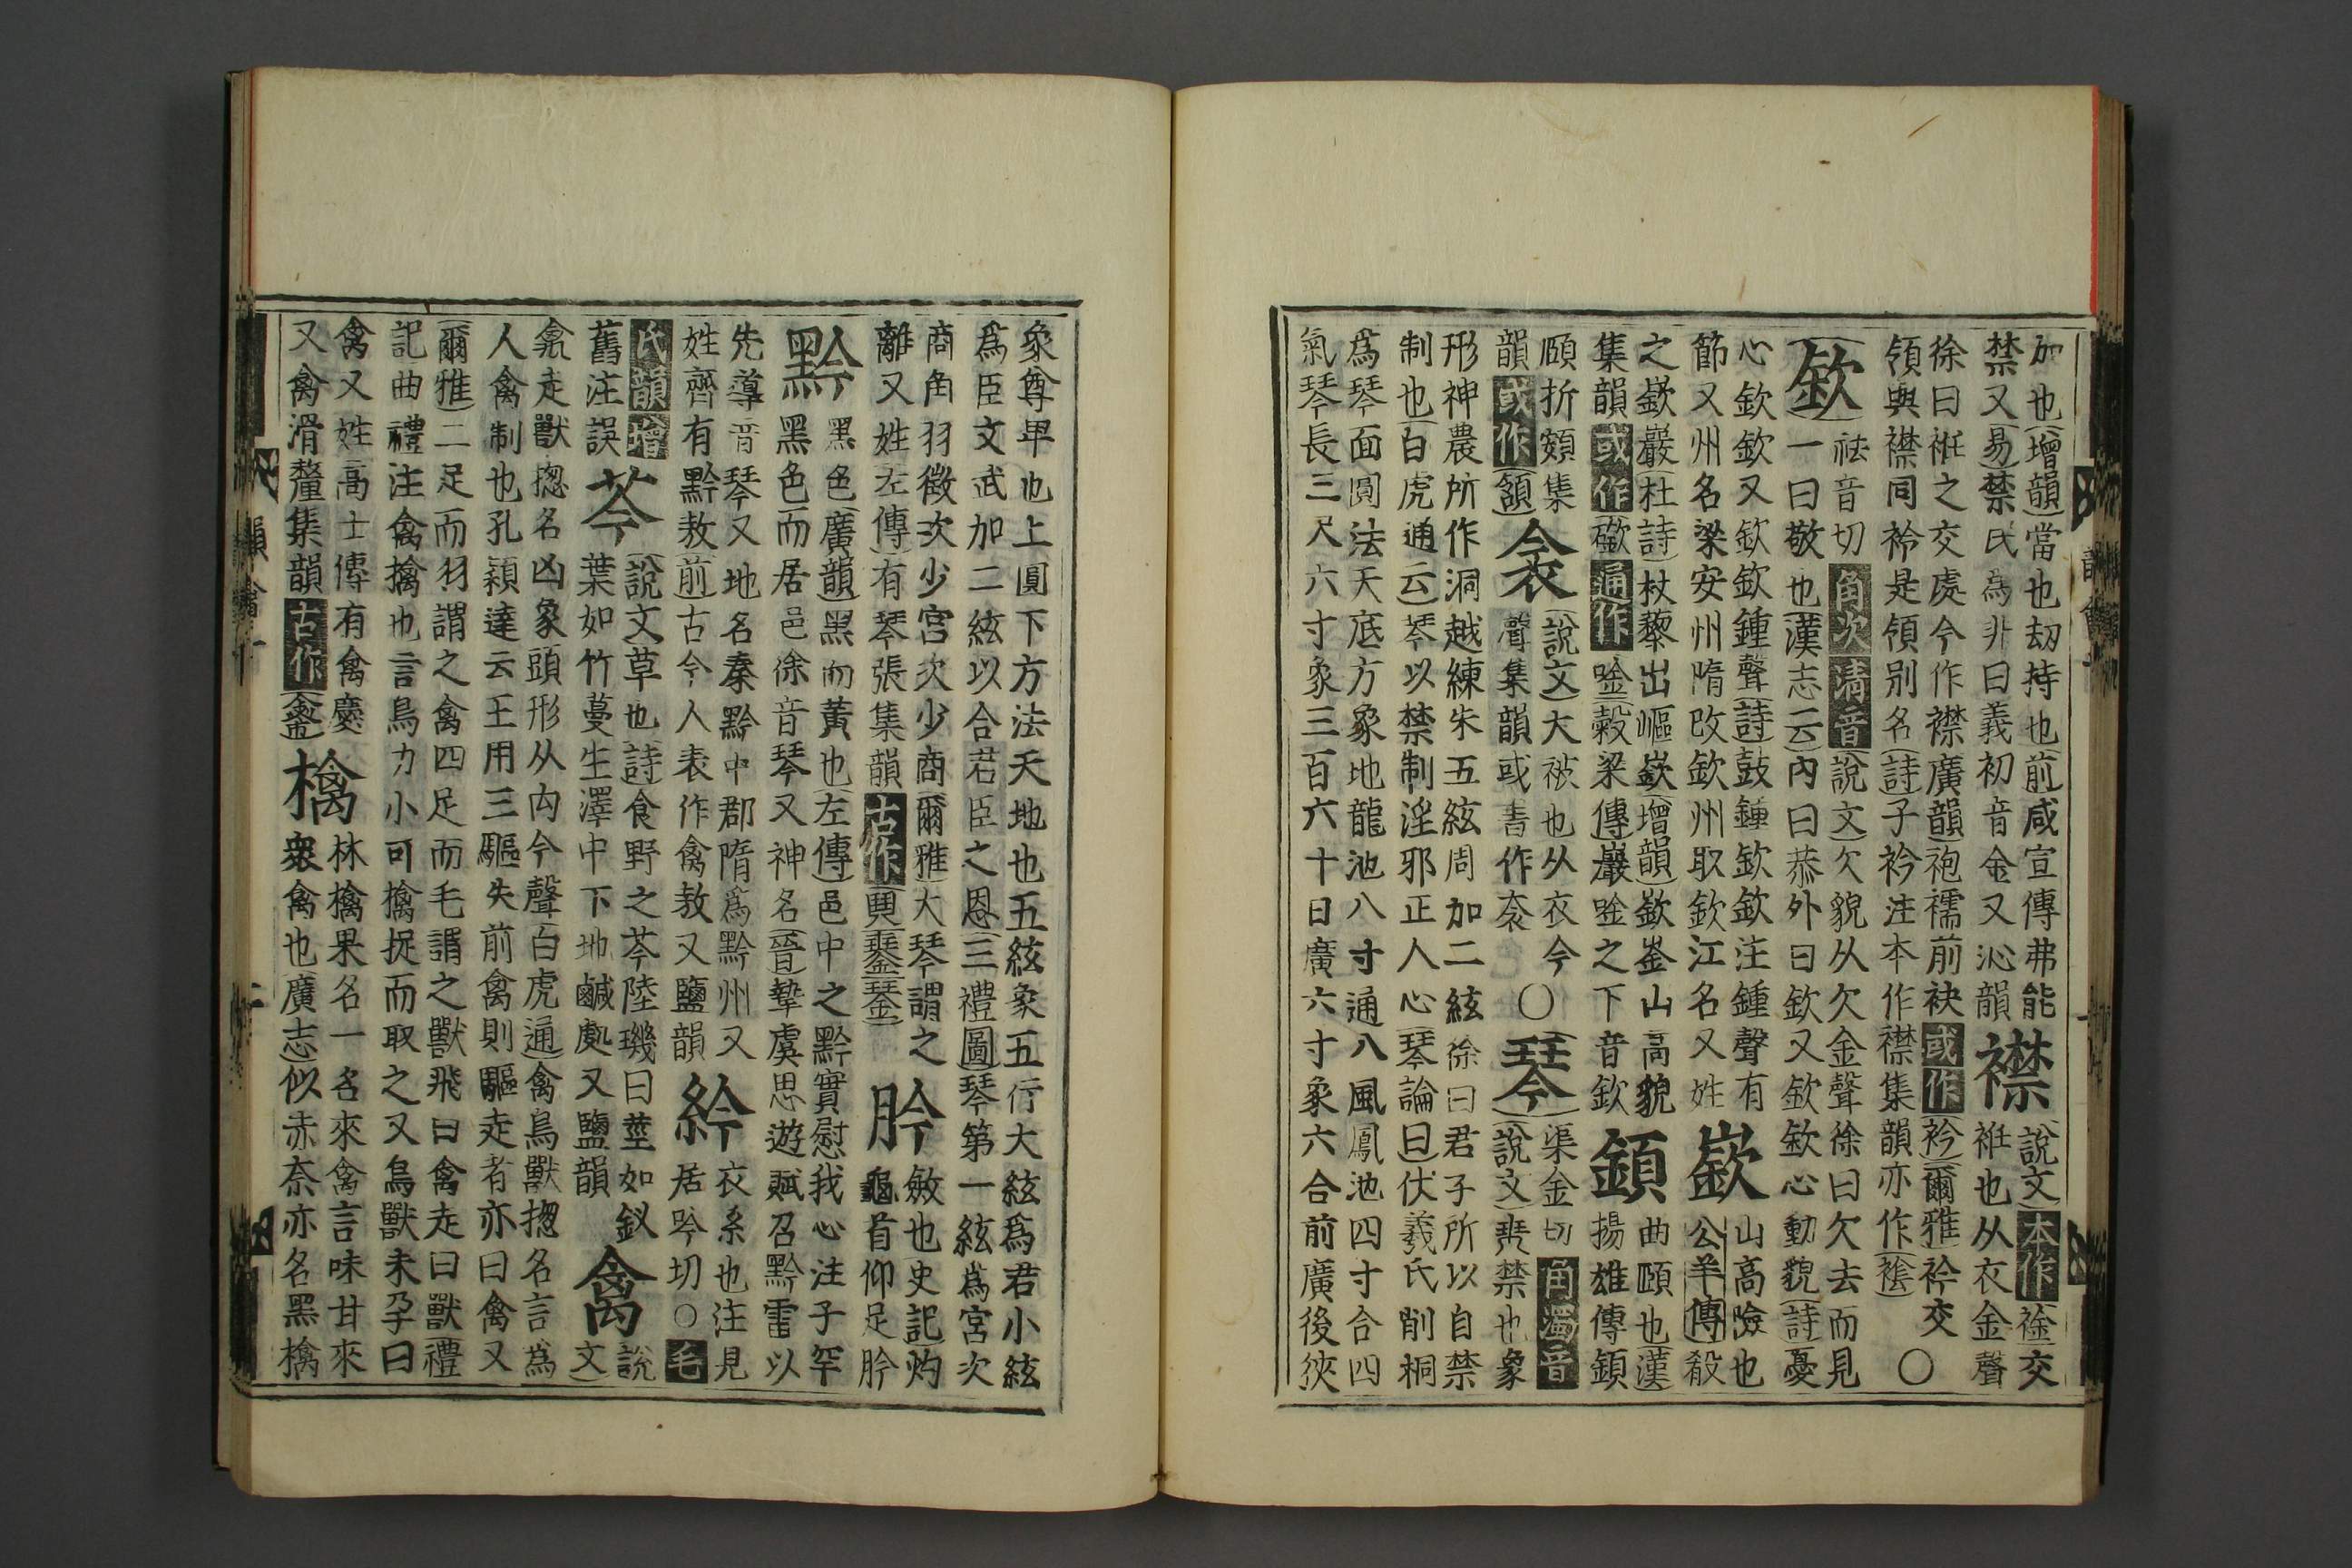 加也增韻當也劫持也前咸宣傳弗能
禁又易禁氏為非曰義初音金又沁韻
襟
說文本作䘳交
衽也从衣金聲
徐曰衽之交處今作襟廣韻袍襦前袂或作衿爾雅衿交
領與襟同衿是領別名詩子衿注本作襟集韻亦作䘳○
欽
祛音切角次清音說文欠貌从欠金聲徐曰欠去而見
一曰敬也漢志云內曰恭外曰欽又欽欽心動貌詩憂
心欽欽又欽欽鍾聲詩鼓鍾欽欽注鍾聲有
節又州名梁安州隋改欽州取欽江名又姓
嶔
山高險也
公羊傳殽
之嶔巖杜詩杖藜出嶇嶔增韻嶔崟山高貌
集韻或作礉通作唫穀梁傳巖唫之下音欽
顉
曲頤也漢
揚雄傳顉
頤折頞集
韻或作頷
衾
說文大被也从衣今○
聲集韻或書作衮
琴
渠金切角濁音
說文珡禁也象
形神農所作洞越練朱五絃周加二絃徐曰君子所以自禁
制也白虎通云琴以禁制淫邪正人心琴論曰伏羲氏削桐
為琴面圓法天底方象地龍池八寸通八風鳳池四寸合四
氣琴長三尺六寸象三百六十日廣六寸象六合前廣後狹
象尊卑也上圓下方法天地也五絃象五行大絃為君小絃
為臣文武加二絃以合君臣之恩三禮圖琴第一絃為宮次
商角羽徵次少宮次少商爾雅大琴謂之
離又姓左傳有琴張集韻古作
肣
斂也史記灼
龜首仰足肣
黔
黑色廣韻黑而黃也左傳邑中之黔實慰我心注子罕
黑色而居邑徐音琴又神名晉摯虞思遊賦召黔雷以
先導晉琴又地名秦黔中郡隋為黔州又
姓齊有黔敖前古今人表作禽敖又鹽韻
紟
衣系也注見
居吟切○毛
氏韻增
舊注誤
芩
說文草也詩食野之芩陸璣曰莖如釵
葉如竹蔓生澤中下地鹹處又鹽韻
禽
說
文
禽走獸揔名凶象頭形从禸今聲白虎通禽鳥獸揔名言為
人禽制也孔穎達云王用三驅失前禽則驅走者亦曰禽又
爾雅二足而羽謂之禽四足而毛謂之獸飛曰禽走曰獸禮
記曲禮注禽擒也言鳥力小可擒捉而取之又鳥獸未孕曰
禽又姓高士傳有禽慶
又禽滑釐集韻古作
檎
林檎果名一名來禽言味甘來
衆禽也廣志似赤奈亦名黑檎